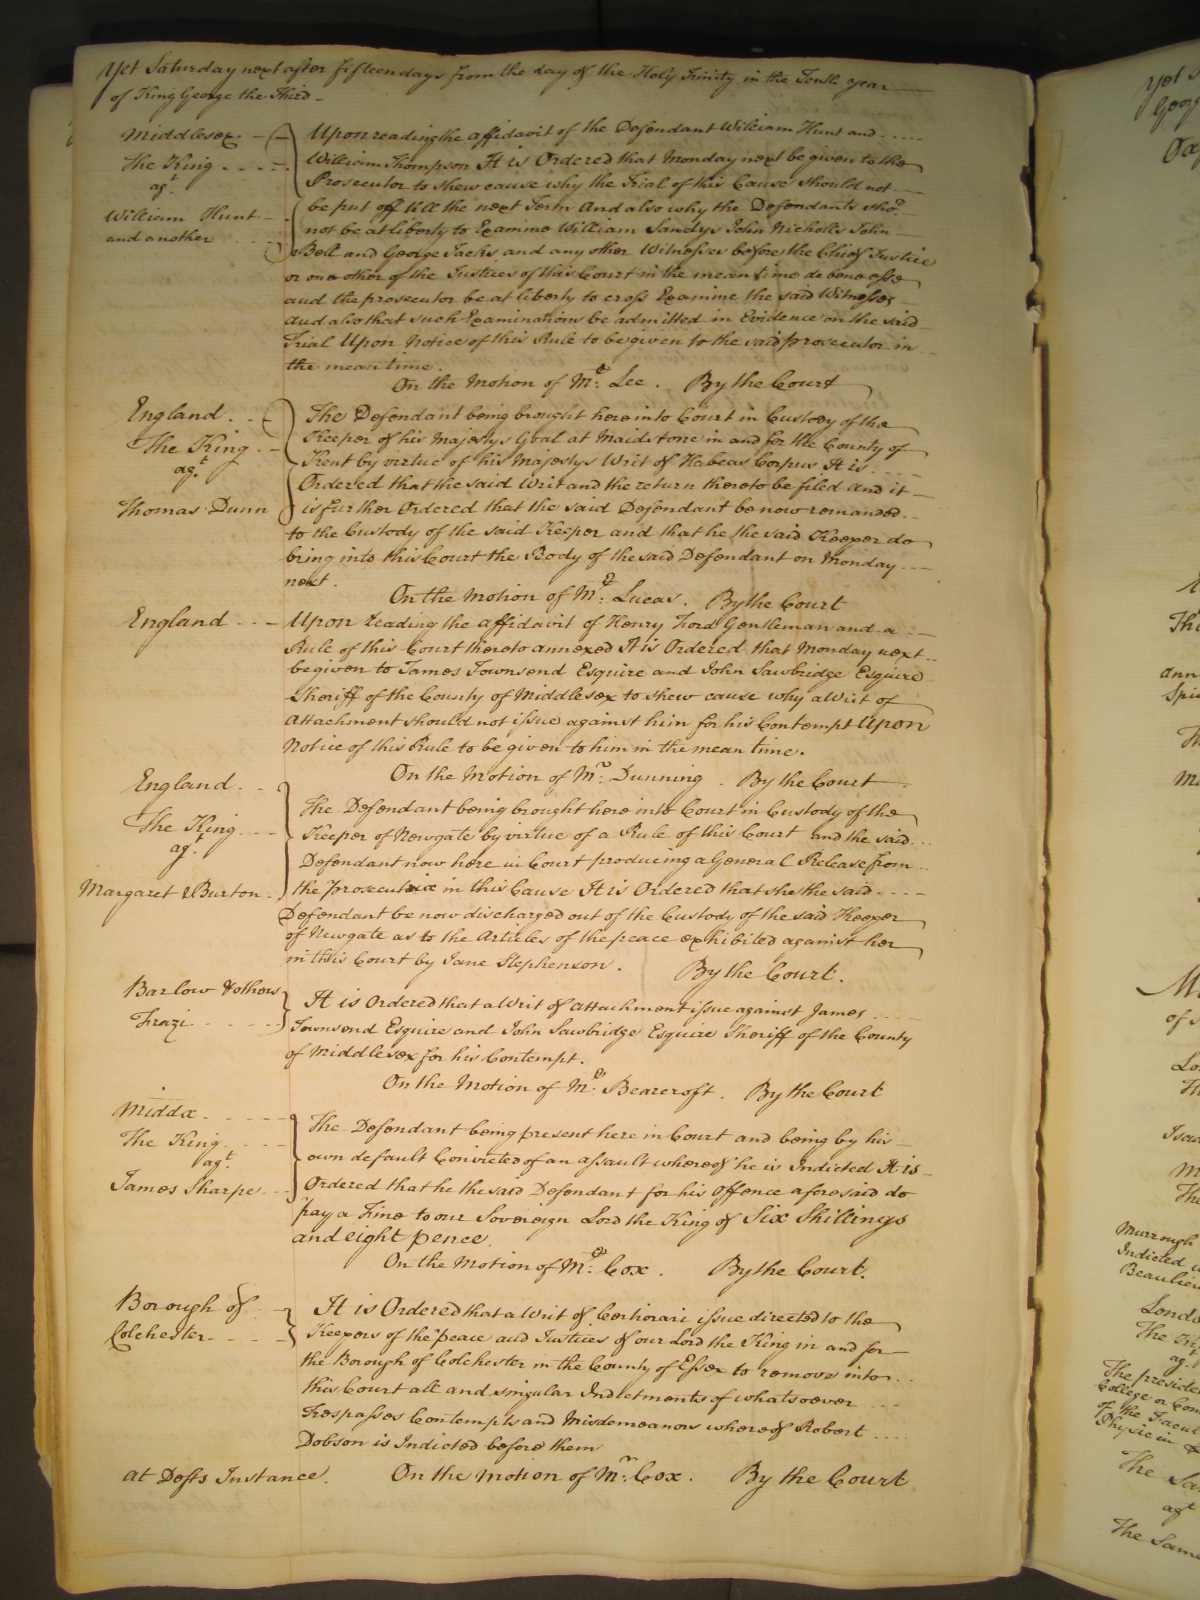 Yet Saturday next after fifteen days from the day of the Holy Trinity in the Tenth year
of King George the Third
Middlesex
The King
agt.
William Hunt
and another
Upon reading the affidavit of the Defendant William Hunt and
William Thompson It is Ordered that Monday next be given to the
Prosecutor to shew cause why the Trial of this Cause should not
be put off till the next Term And also why the Defendants sho.d
not be at liberty to Examine William Sandys John Nicholls John
Bell and George Jacks and any other Witnesses before the Chief Justice
or one other of the Justices of this Court in the mean time de bene esse
and the prosecutor be at liberty to cross Examine the said Witnesses
and also that such Examinations be admitted in Evidence on the said
Trial Upon Notice of this Rule to be given to the said prosecutor in
the mean time.
On the Motion of Mr. Lee. By the Court
England
The King
agt.
Thomas Dunn
The Defendant being brought here into Court in Custody of the
Keeper of his Majestys Goal at Maidstone in and for the County of
Kent by virtue of his Majestys Writ of Habeas Corpus It is
Ordered that the said Writ and the return thereto be filed and it
is further Ordered that the said Defendant be now remanded
to the Custody of the said Keeper and that he the said Keeper do
bring into this Court the Body of the said Defendant on Monday
next.
On the Motion of Mr. Lucas. By the Court
England
Upon reading the affidavit of Henry Ford Gentleman and a
Rule of this Court thereto annexed It is Ordered that Monday next
be given to James Townsend Esquire and John Sawbridge Esquire
Sheriff of the County of Middlesex to shew cause why a Writ of
Attachment should not issue against him for his Contempt Upon
Notice of this Rule to be given to him in the mean time.
On the Motion of Mr. Dunning. By the Court
England
The King
agt.
Margaret Burton
The Defendant being brought here into Court in Custody of the
Keeper of Newgate by virtue of a Rule of this Court and the said
Defendant now here in Court producing a General Release from
the prosecutrix in this Cause It is Ordered that she the said
Defendant be now discharged out of the Custody of the said Keeper
of Newgate as to the Articles of the peace exhibited against her
in this Court by Jane Stephenson. By the Court.
Barlow & others
Frazi
It is Ordered that a Writ of attachment issue against James
Townsend Esquire and John Sawbridge Esquire Sheriff of the County
of Middlesex for his Contempt.
On the Motion of Mr. Bearcroft. By the Court
Middx.
The King
agt.
James Sharpe
The Defendant being present here in Court and being by his
own default Convicted of an assault whereof he is Indicted It is
Ordered that he the said Defendant for his Offence aforesaid do
pay a Fine to our Sovereign Lord the King of Six Shillings
and eight pence.
On the Motion of Mr. Cox. By the Court.
Borough of
Colchester
It is Ordered that a Writ of Certiorari issue directed to the
Keepers of the peace and Justices of our Lord the King in and for
the Borough of Colchester in the County of Essex to remove into
this Court all and singular Indictments of whatsoever
Trespasses Contempts and Misdemeanors whereof Robert
Dobson is Indicted before them
At Defts Instance. On the Motion of Mr. Cox. By the Court
Yet
Geor
The
ann
Spi
of
Murrough
Indicted
Beaulieu
London
The
agt.
The preside
College or Com
of the Facul
Physic in
The Sa
agt
The Same